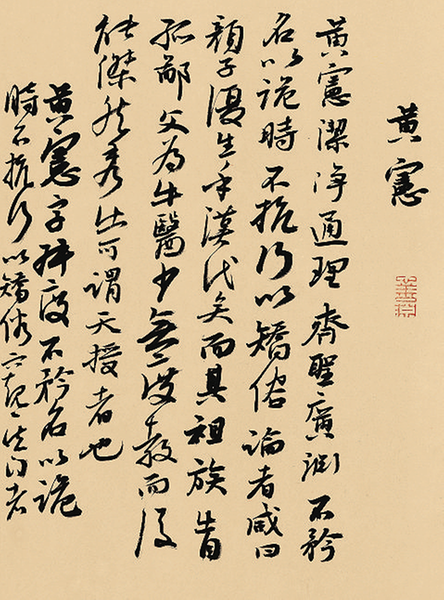 黄憲
黄憲潔淨通理齊聖廣淵不矜
名以詭時不抗行以矯俗論者咸曰
顔子復生乎漢代矣而其祖族皆
孤鄙父為牛醫少無教而後
能傑然秀出可謂天授者也
黄憲字叔度不矜名以詭
時不抗行以矯俗門者